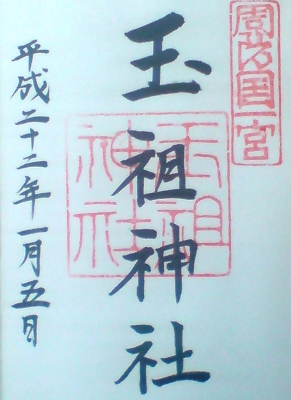 周防国一宮
玉祖神社
玉祖神社
平成二十二年一月五日